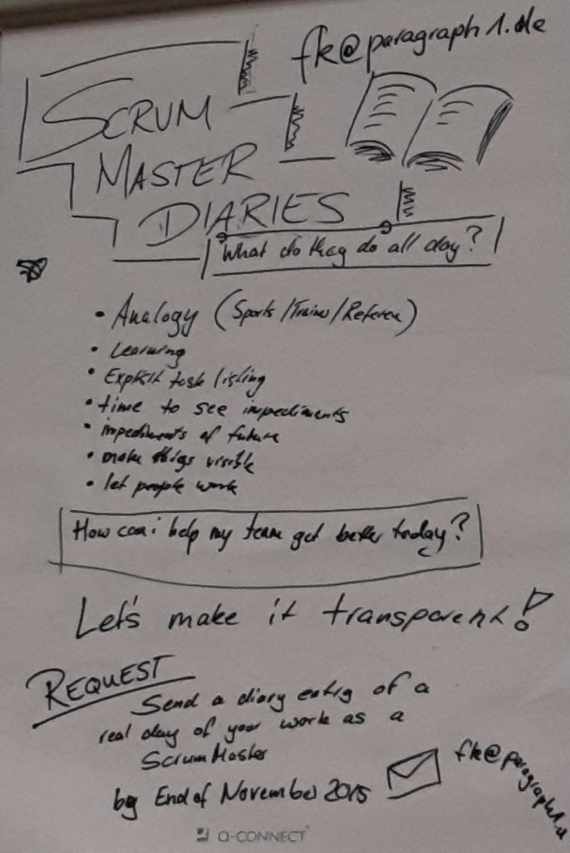 fk@paragraph1.de
SCRUM
MASTER
DIARIES
What do they do all day?
• Analogy (Sports/Trainer/Referee)
• Learning
• Explicit task listing
• time to see impediments
• impediments of future
• make things visible
• let people work
How can i help my team get better today?
Let's make it transparent!
REQUEST
Send a diary entry of a
real day of your work as a
ScrumMaster
by End of November 2015
fk@paragraph1.d
Q-CONNECT